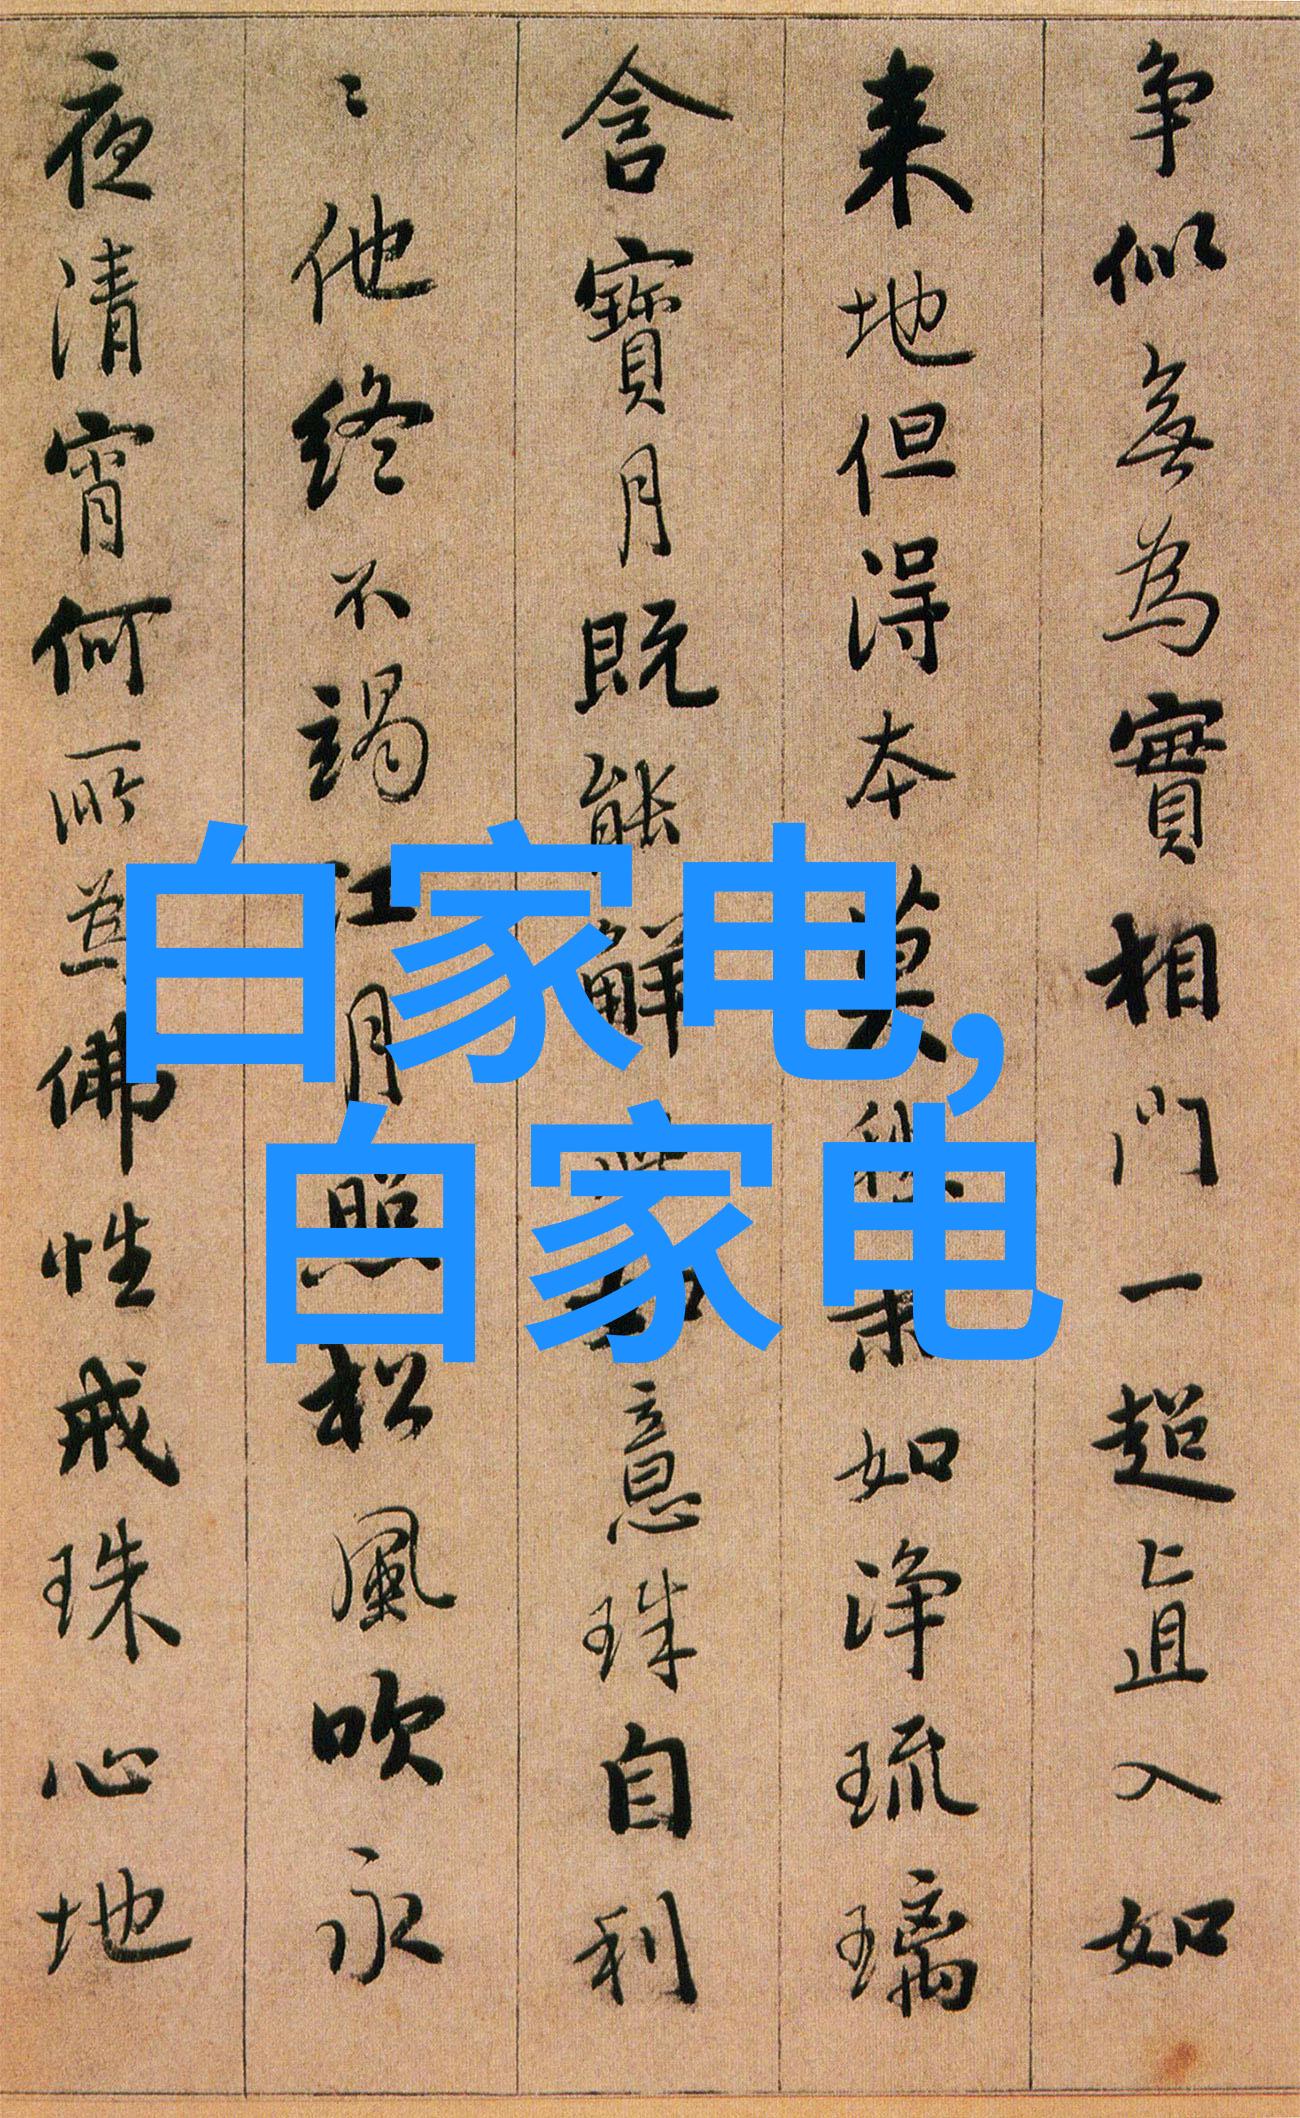 争似無為實相門一超直入如
来地但得本莫愁末如淨琉璃
含寶月既能解此如意珠自利
〻他終不竭江月照松風吹永
夜清宵何所為佛性戒珠心地
白家电,
白家电